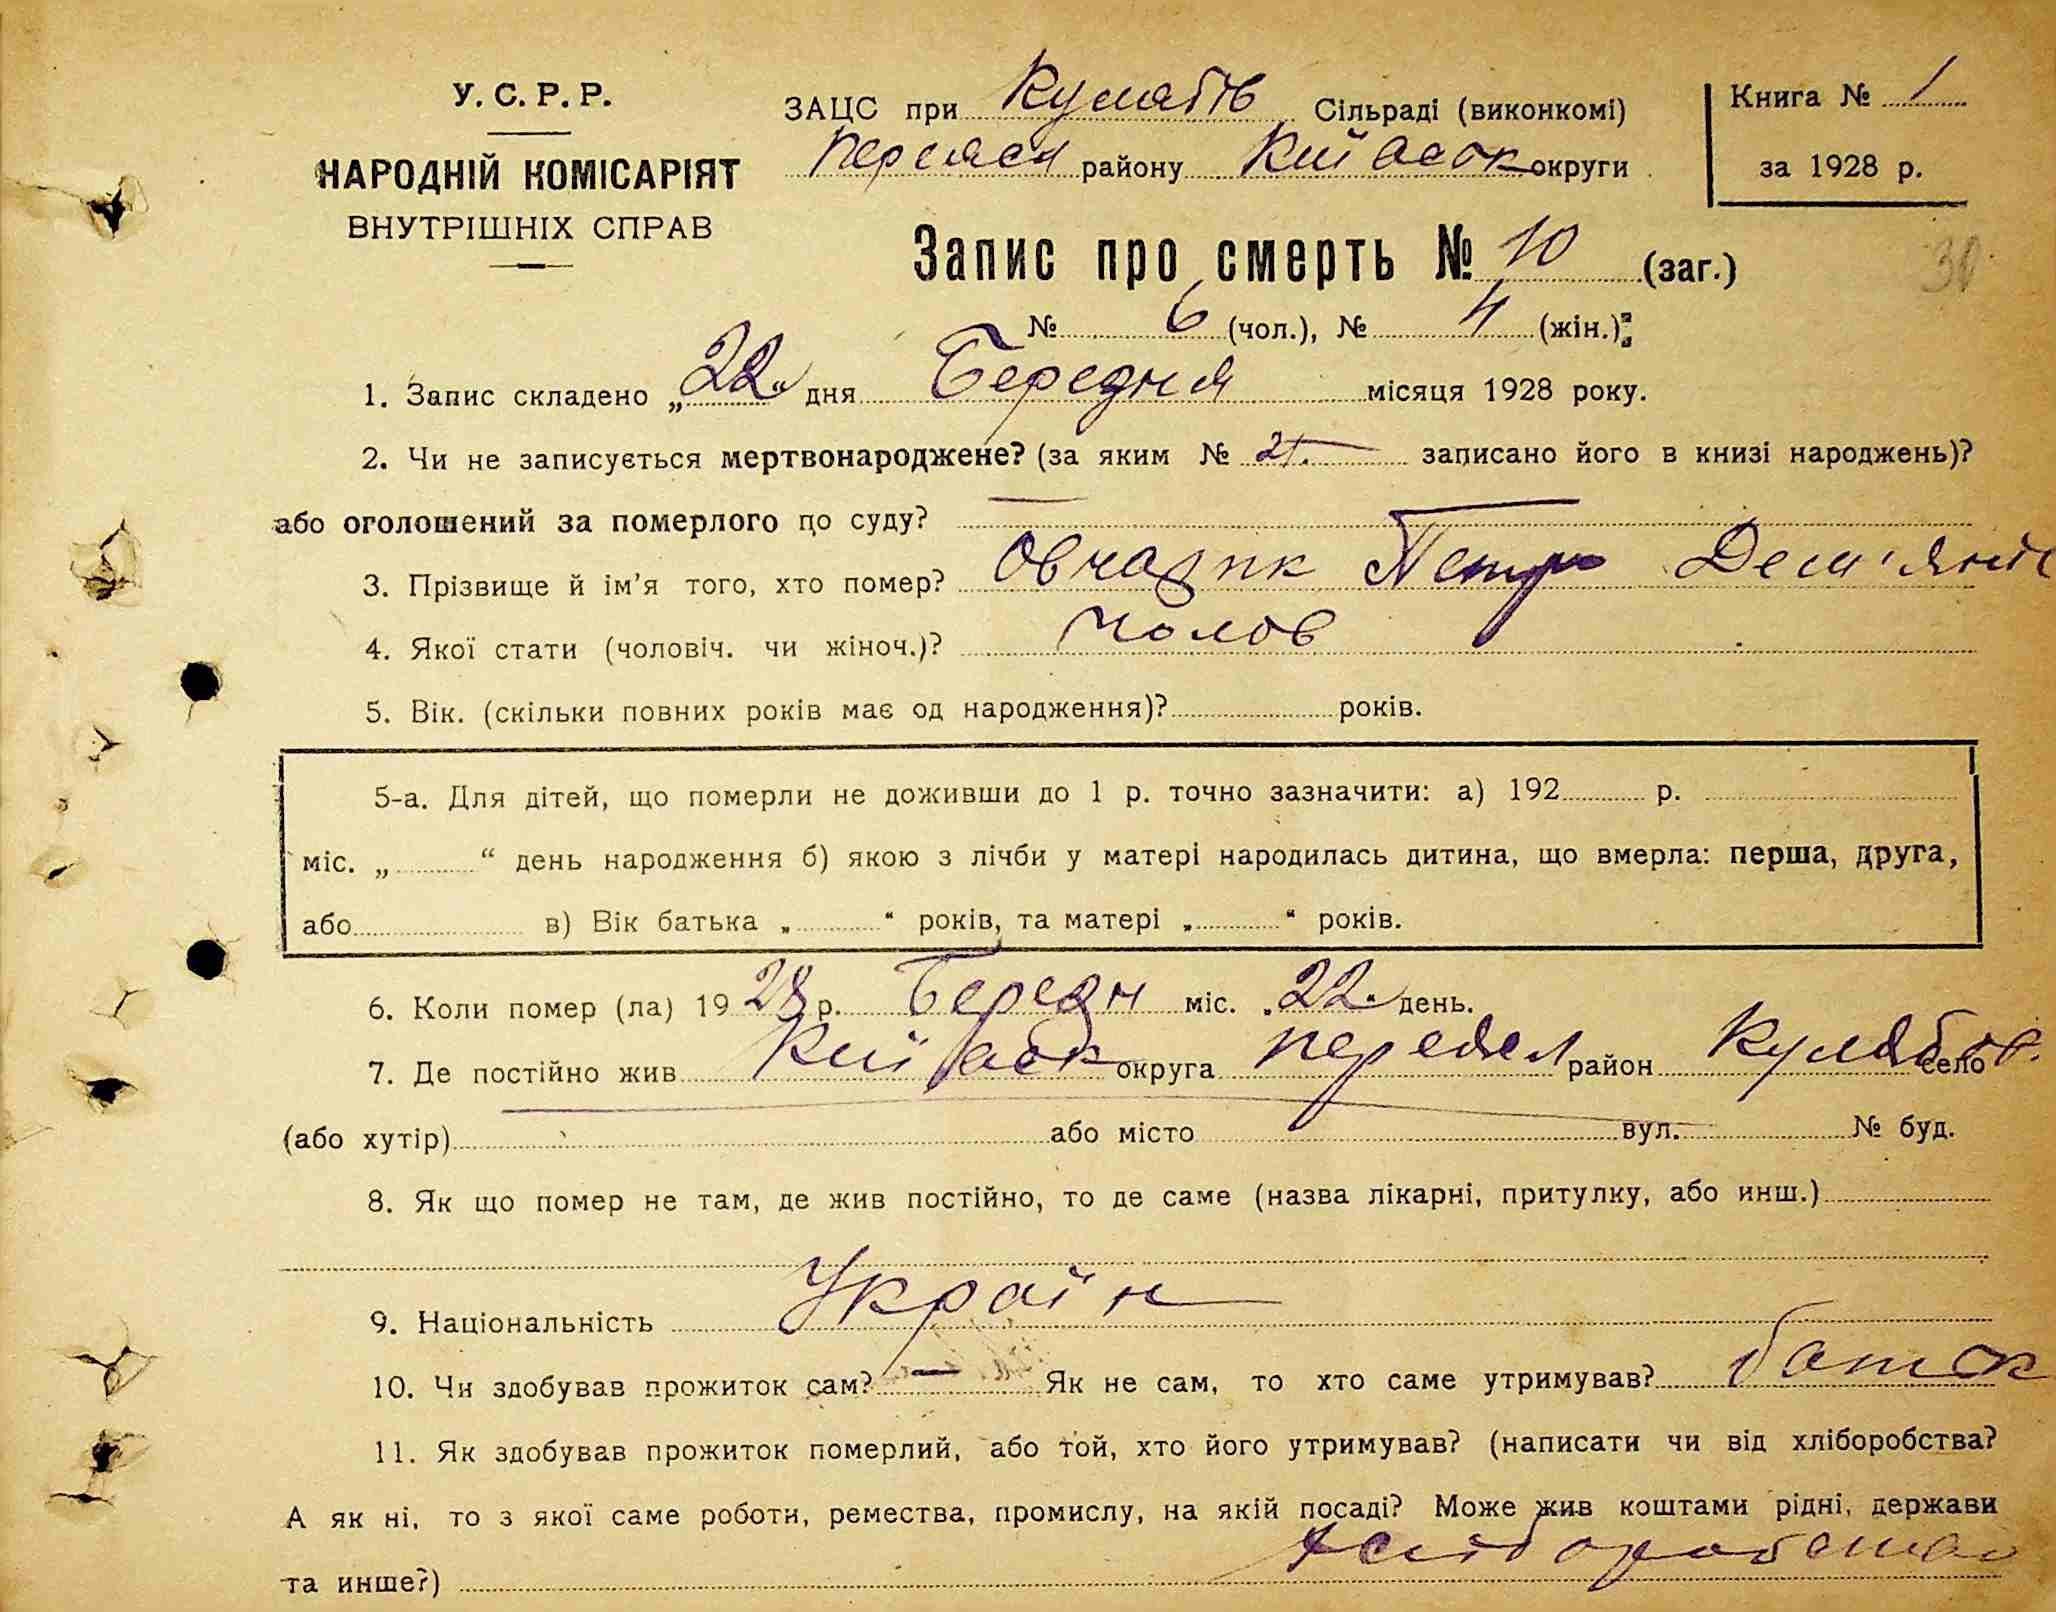 У. С. Р. Р.
НАРОДНІЙ КОМІСАРІЯТ
ВНУТРІШНІХ СПРАВ
ЗАЦС при Кулябів Сільраді (виконкомі)
району Київськ округи
Книга № 1
за 1928 р.
Запис про смерть № 10 (заг.)
30
№ 6 (чол.), № 4 (жін.):
1. Запис складено „22“ дня Березня місяця 1928 року.
2. Чи не записується мертвонароджене? (за яким № записано його в книзі народжень)?
або оголошений за померлого по суду? —
3. Прізвище й ім’я того, хто помер? Овчарик Петро Дем'янів
4. Якої стати (чоловіч. чи жіноч.)? Чолов
5. Вік. (скільки повних років має од народження)? років.
5-а. Для дітей, що померли не доживши до 1 р. точно зазначити: а) 192 р.
міс. „ “ день народження б) якою з лічби у матері народилась дитина, що вмерла: перша, друга,
або в) Вік батька „ “ років, та матері „ “ років.
6. Коли помер (ла) 1928 р. Березн міс. „22“ день.
7. Де постійно жив Київськ округа район Кулябов. село
(або хутір) або місто вул. № буд.
8. Як що помер не там, де жив постійно, то де саме (назва лікарні, притулку, або инш.)
9. Національність Україн
10. Чи здобував прожиток сам? — Як не сам, то хто саме утримував? батьк
11. Як здобував прожиток померлий, або той, хто його утримував? (написати чи від хліборобства?
А як ні, то з якої саме роботи, ремества, промислу, на якій посаді? Може жив коштами рідні, держави
та инше?)